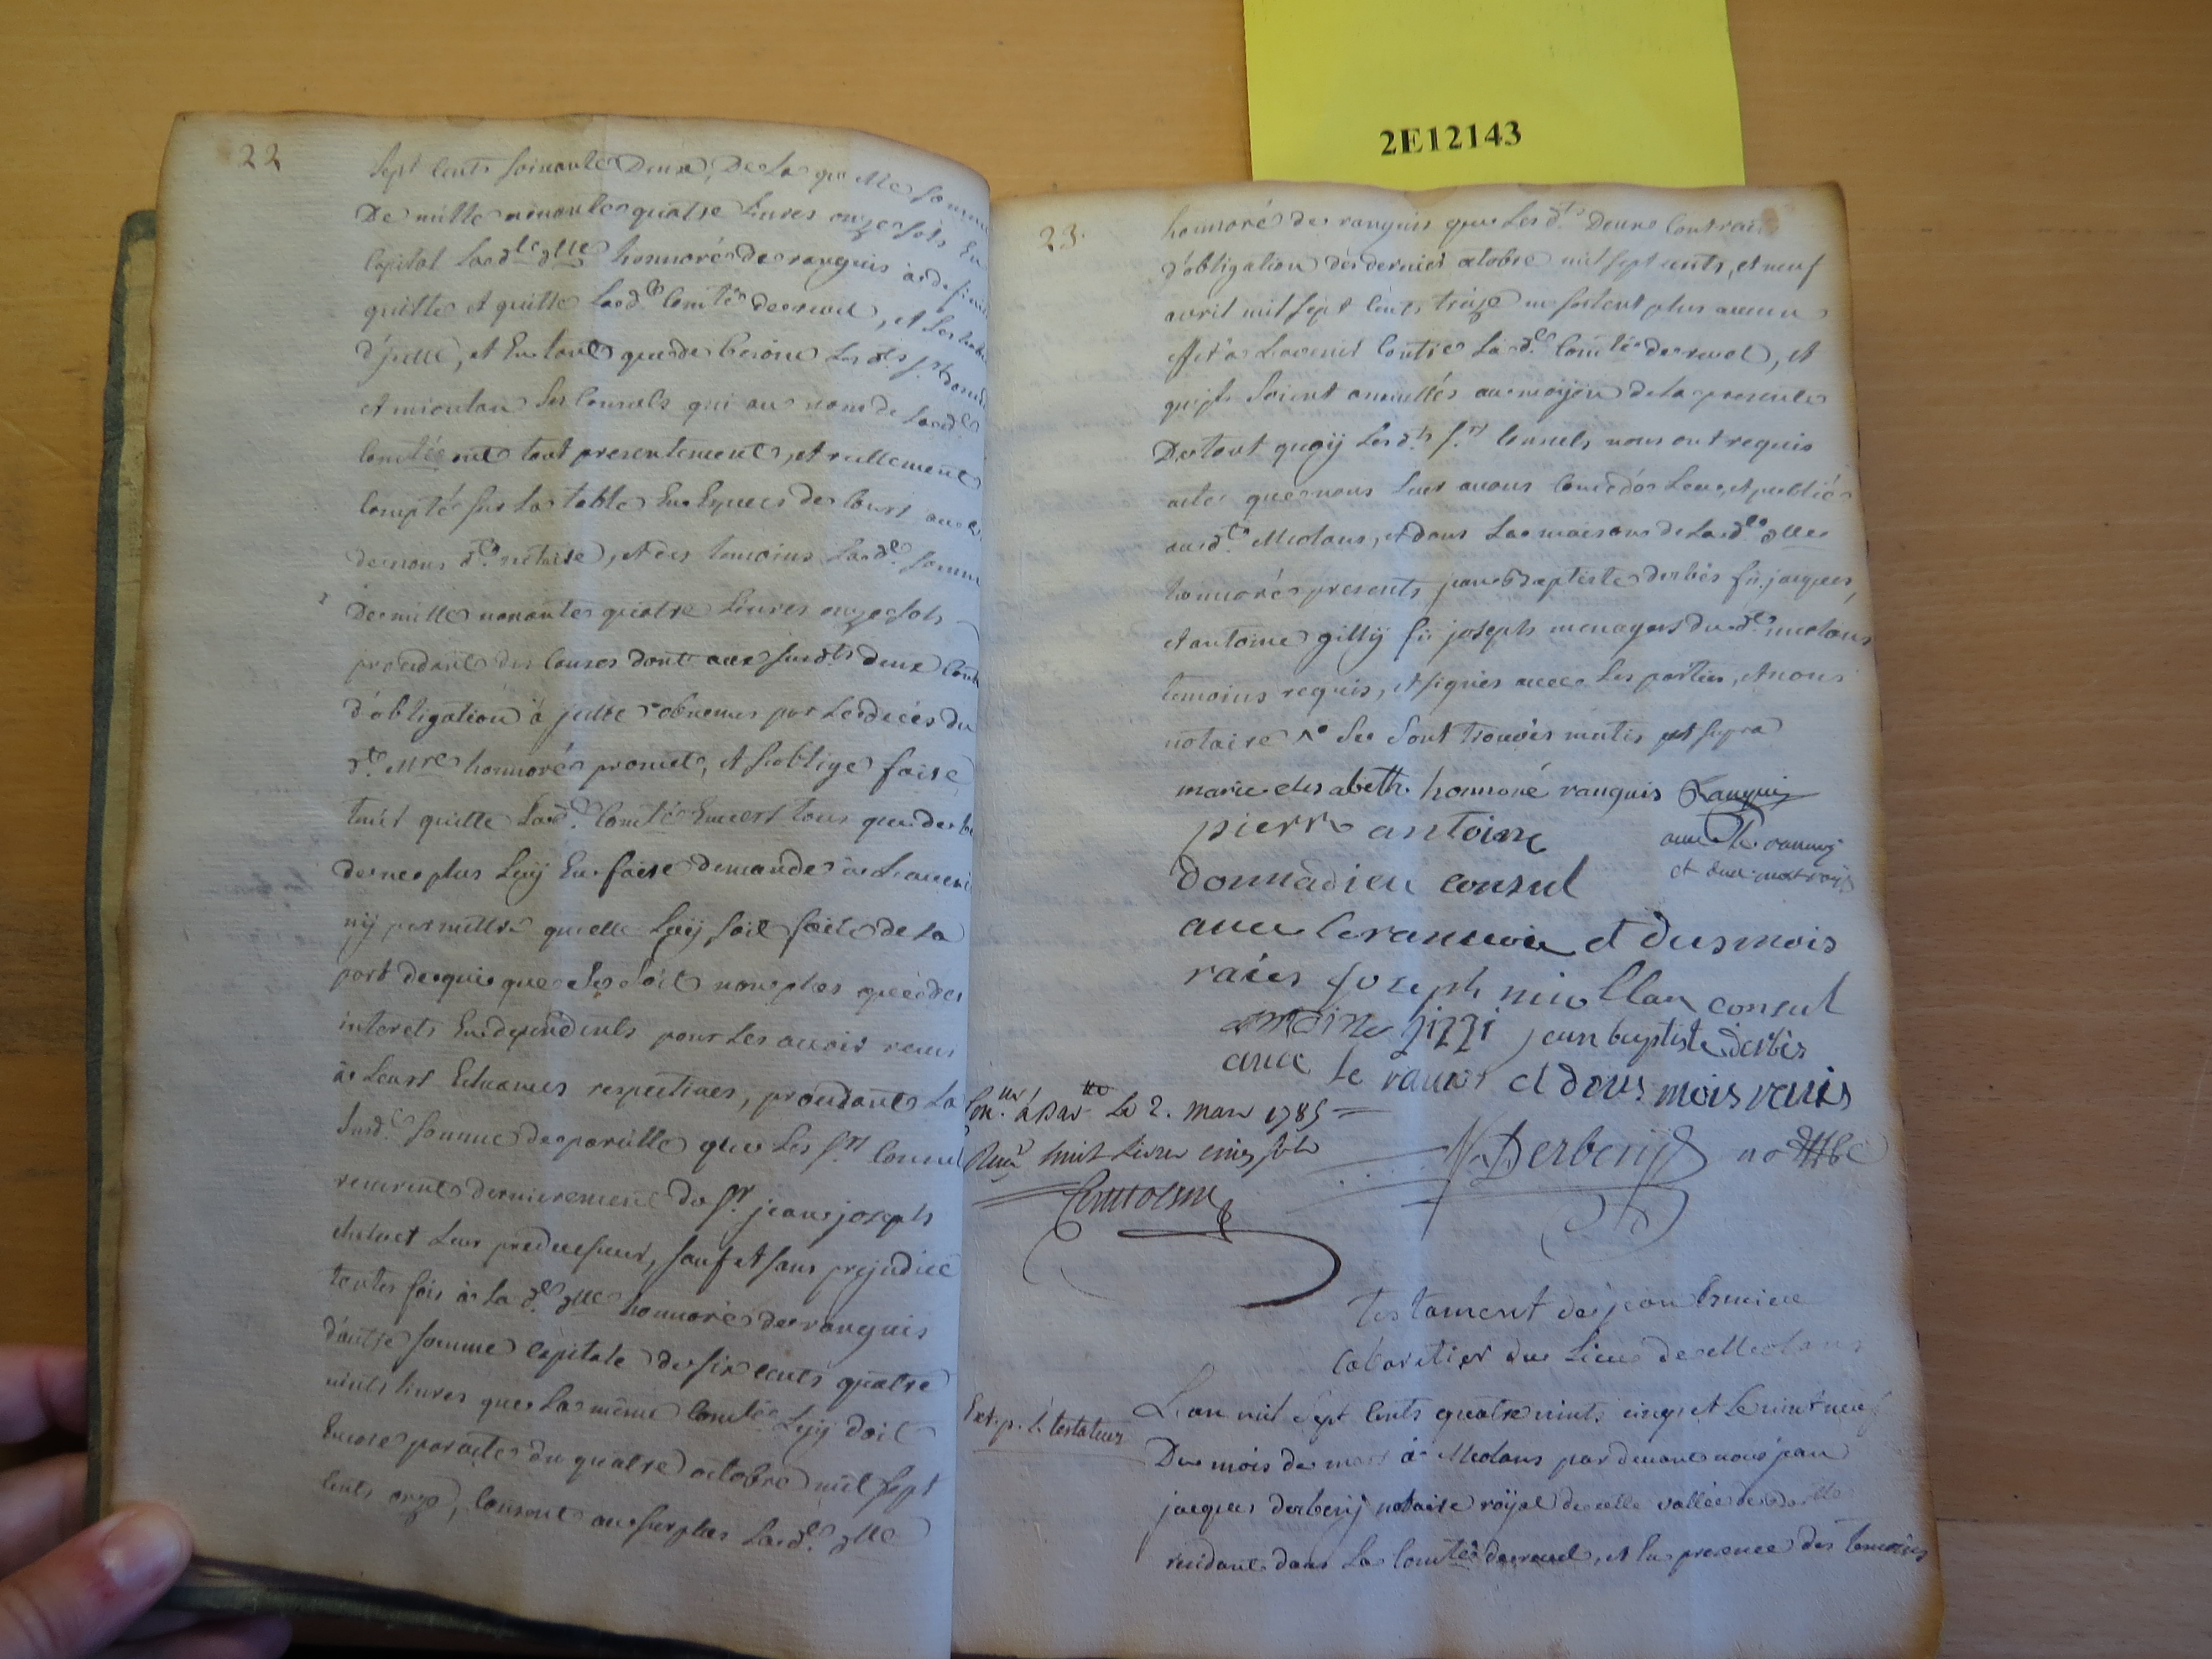 2E12143
22
Sept cents soixante Deux, De La quelle somme
De mille nonante quatre Livres onze sols En
Capital Lad.te dlle honnoré de ranguis a desuite
quitté et quitte Lad.te Com.té de revel, et Les habi
d'icelle, et En tout que de besoin Les d.ts s.rs donnadi
et mieulan Les Consuls qui au nom de Lad.e
Com.té ont tout presentement, et reellement
Compté sur La table En Especes de Cours au
de nous d.t notaire, et des temoins Lad.e somme
De mille nonante quatre Livres onze sols
procedant des causes dont aux susd.ts deux Cont
d'obligation à icelle obvenus par Le decés du
d.t M.re honnoré promet, et s'oblige faire
tenir quitte Lad.e Com.té Envers tous que de
de ne plus Luy En faire demande à L'aveni
ny permettre qu'elle Luy soit faite de La
part de qui que ce soit non plus que des
interets En dependents pour Les avoir recus
à Leurs Echeances respectives, procedante La
susd.e somme de pareille que Les s.rs Consul
recurent dernierement du s.r jean joseph
Leur predecesseur, sauf et sans prejudice
toutes fois à La d.e dlle honnoré de ranguis
d'autre somme capitale de six cents quatre
vints livres que La même Com.té Luy doit
Encore par acte du quatre octobre mil sept
cents onze, Consent au surplus Lad.e dlle
23.
honnoré de ranguis que Les d.ts Deux Contrats
d'obligation des dernier octobre mil sept cents, et neuf
avril mil sept Cents treize ne sortent plus aucun
Effet à L'avenir Contre La d.e Com.té de revel, et
qu'ils soient annullés au moyen de La presente
De tout quoy Les d.ts s.rs Consuls nous ont requis
acte que nous Leur avons Concedé Leu, et publié
aud.t Meolans, et dans La maison de Lad.e dlle
honnoré presents jean Baptiste derbés fs. jacques,
et antoine gilly fs joseph menagers dud.t meolans
temoins requis, et signés avec Les parties, et nous
notaire se sont trouvés mutis ut supra
marie elisabeth honnoré ranguis
pierre antoine
donnadieu consul
avec le et dus mois
raies joseph miollan consul
antoine gizzi jean baptiste derbés
avec le et dous mois raiés
Con.llé à Bar.tte Le 2. mars 1785
Reçu huit Livres cinq sols
Derbezy no.re
testament de jean
Cabaretier du Lieu de Meolans
Ext. p. le testateur
L'an mil sept Cents quatre vints cinq et Le vint neuf
Du mois de mars à Meolans par devant nous jean
jacques derbezy notaire royal de cette vallée de
residant dans La Com.té de revel, et En presence des temoins